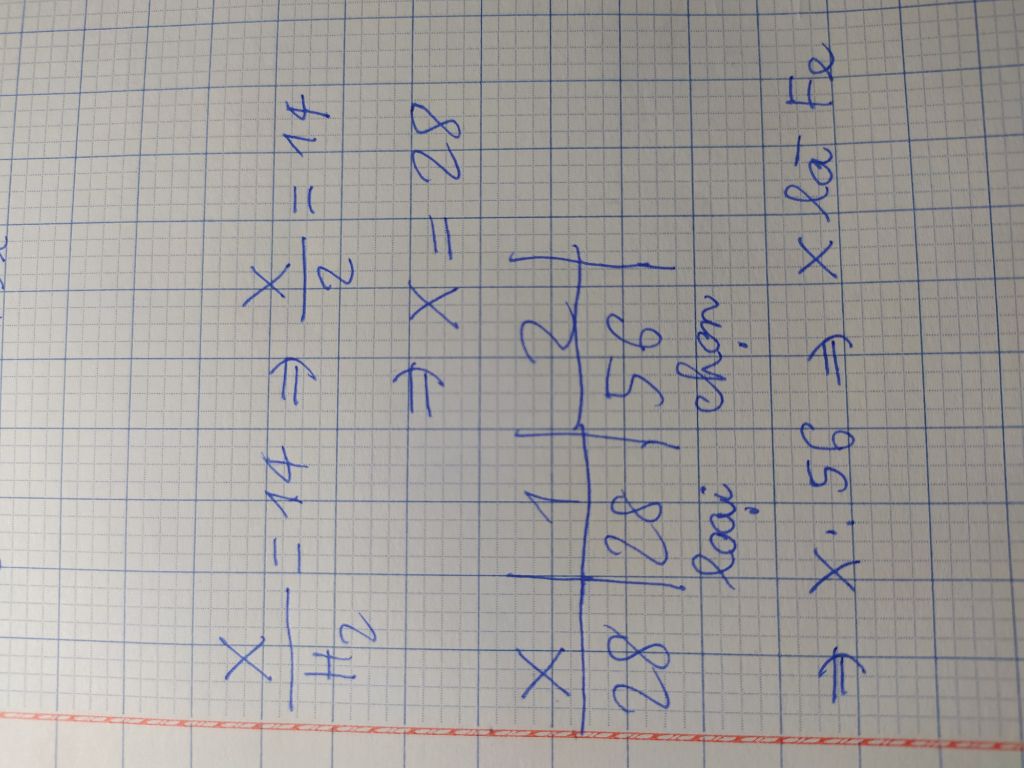 X/H2 = 14 ⇒ X/2 = 14
⇒ X = 28
X | 1 | 2 |
28 | 28 | 56 |
loại chọn
⇒ X : 56 ⇒ X là Fe